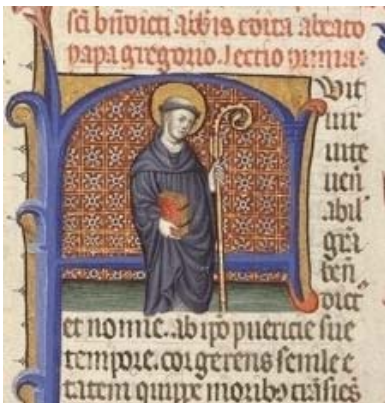 sc̄i bn̄dicti abb̄is edita a beato
papa gregorio. lectio prima:
Fuit
uir
uite
uen̄
abil
gr̄a
ben̄
dict
et nomīe. ab ip̄o puericie sue
tempore. cor gerens senile e
tatem quippe morib᷒ trāsiēs